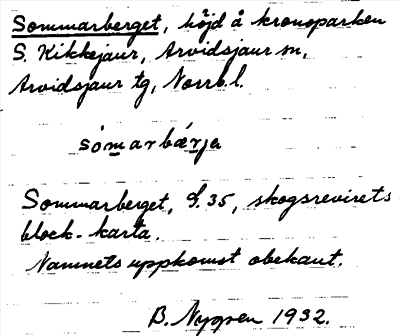 Sommarberget, höjd å kronoparken
S. Kikkejaur, Arvidsjaur sn,
Arvidsjaur tg, Norrb.l.
sómarbærja
Sommarberget, S.35, skogsrevirets
block-karta.
Namnets uppkomst obekant.
B. Nygren 1932.